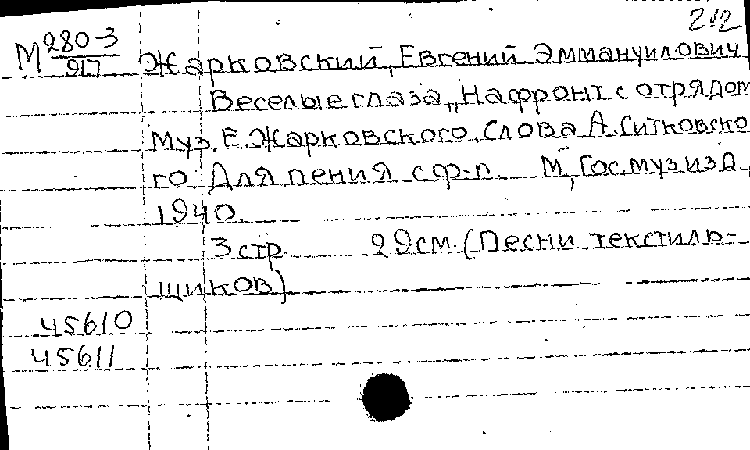 212
М 280-3/917 Жарковский, Евгений Эммануилович
Веселые глаза „На фронт с отрядом
Муз. Е. Жарковского, Слова А. Ситковско
го. Для пения с ф-п. М., Гос. муз изд.,
1940.
3 стр. 29 см. (Песни текстиль-
щиков)
45610
45611